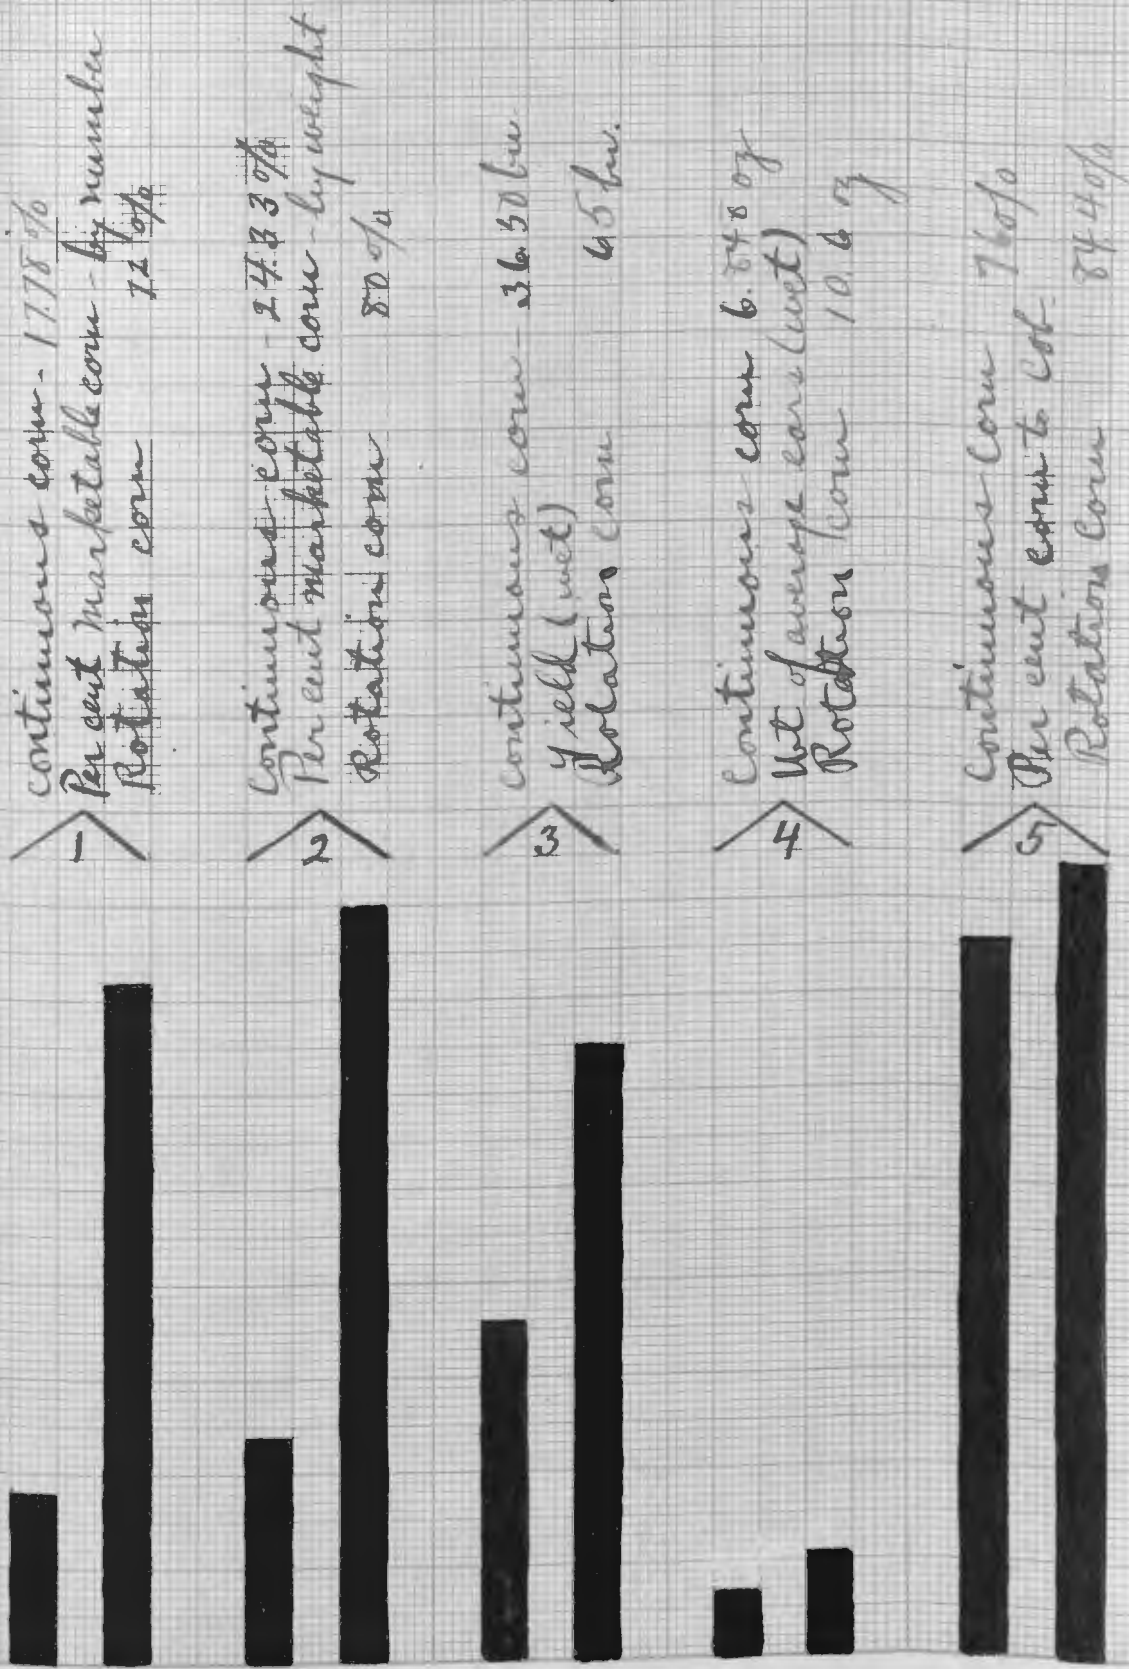 continuous corn - 17.78%
1 Per cent Marketable corn - by number
Rotation corn 72%
Continuous corn - 24.33%
2 Per cent marketable corn - by weight
Rotation corn 80%
continuous corn 36.30 bu
3 Yield (wet)
Rotation corn 65 bu.
Continuous corn 6.848 oz
4 Wt of average ears (wet)
Rotation Corn 10.6 oz
Continuous Corn 76%
5 Per cent corn to cob
Rotation Corn 84.4%